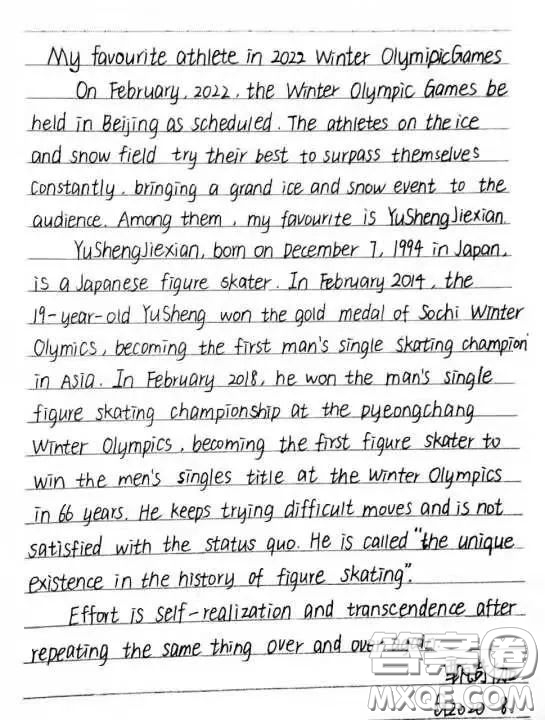 My favourite athlete in 2022 Winter OlymipicGames
On February, 2022, the Winter Olympic Games be
held in Beijing as scheduled. The athletes on the ice
and snow field try their best to surpass themselves
constantly, bringing a grand ice and snow event to the
audience. Among them, my favourite is YuShengJiexian.
YuShengJiexian, born on December 7, 1994 in Japan,
is a Japanese figure skater. In February 2014, the
19-year-old YuSheng won the gold medal of Sochi Winter
Olymics, becoming the first man's single skating champion
in Asia. In February 2018, he won the man's single
figure skating championship at the pyeongchang
Winter Olympics, becoming the first figure skater to
win the men's singles title at the Winter Olympics
in 66 years. He keeps trying difficult moves and is not
satisfied with the status quo. He is called "the unique
existence in the history of figure skating".
Effort is self-realization and transcendence after
repeating the same thing over and over
答案圈
MXQE.COM